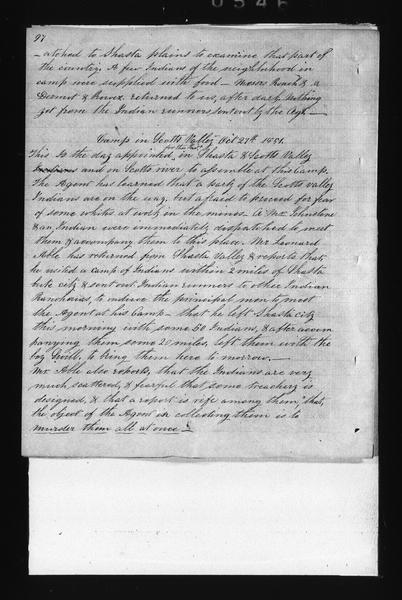 97
-atched to Shasta plains to examine that part of
the country. A few Indians of the neighborhood in
camp were supplied with food - Messrs Roach & a
Dermit & Rowe returned to us after dark. Nothing
yet from the Indian runners sent out by the Agt. -
Camp in Scotts Valley Oct 27th 1851.
for the Inds
This is the day appointed, in Shasta & Scotts Valley
Indians and on Scotts river to assemble at this Camp.
The Agent has learned that a part of the Scotts valley
Indians are on the way, but afraid to proceed for fear
of some whites at work in the mines. A Mr. Johnstone
& an Indian were immediately despatched to meet
them & accompany them to this place. Mr Leonard
Able has returned from Shasta Valley & reports that
he visited a camp of Indians within 2 miles of Shasta
bute city & sent out Indian runners to other Indian
Rancherias, to induce the principal men to meet
the Agent at his Camp - that he left Shasta city
this morning with some 60 Indians, & after accom
panying them some 20 miles, left them with the
boy Swill, to bring them here to morrow. -
Mr. Able also reports, that the Indians are very
much scattered, & fearful that some treachery is
designed, & that a report is rife among them, "that
the object of the Agent in collecting them is to
murder them all at once"